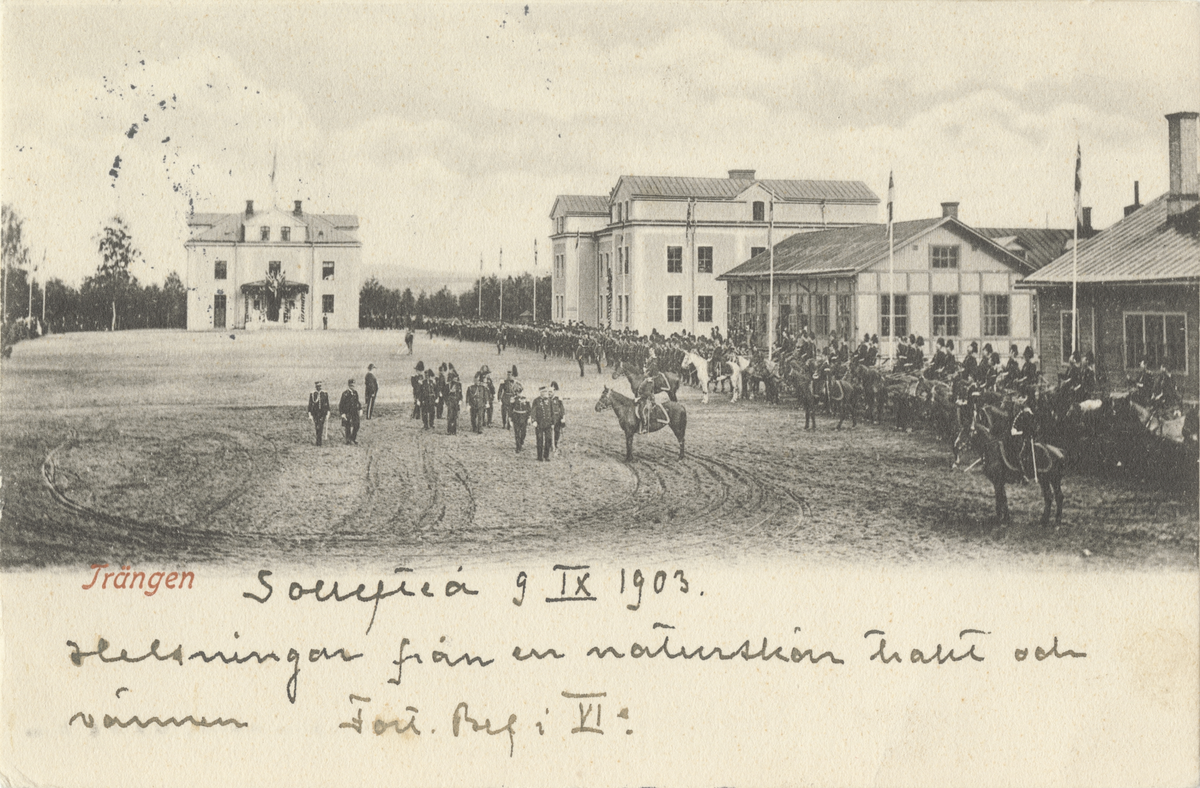 Trängen Sollefteå 9 IX 1903.
Helsningar från en naturskön trakt och
vännen Fort. Bef i VI: